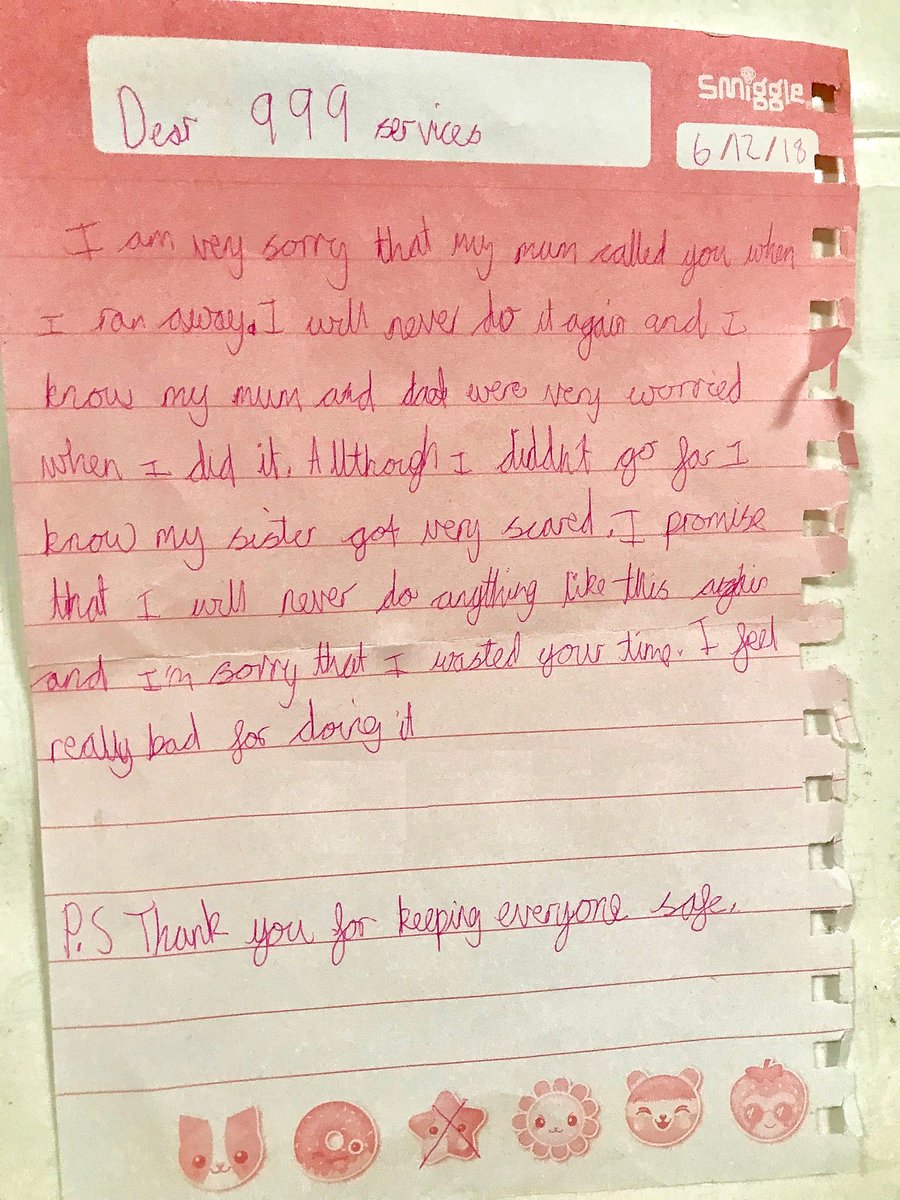 smiggle
Dear 999 services
6/12/18
I am very sorry that my mum called you when
I ran away. I will never do it again and I
know my mum and dad were very worried
when I did it. Allthough I diddn't go far I
know my sister got very scared. I promise
that I will never do anything like this again
and I'm sorry that I wasted your time. I feel
really bad for doing it
P.S Thank you for keeping everyone safe.